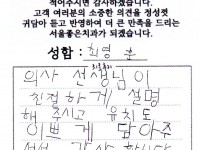 적어주시면 감사하겠습니다.
고객 여러분의 소중한 의견을 정성껏
귀담아 듣고 반영하여 더 큰 만족을 드리는
서울좋은치과가 되겠습니다.
성함 : 최영훈
의사 선생님이
친절하게 설명
해 주시고 유치도
이쁘게 담아주
셔서 감사합니다